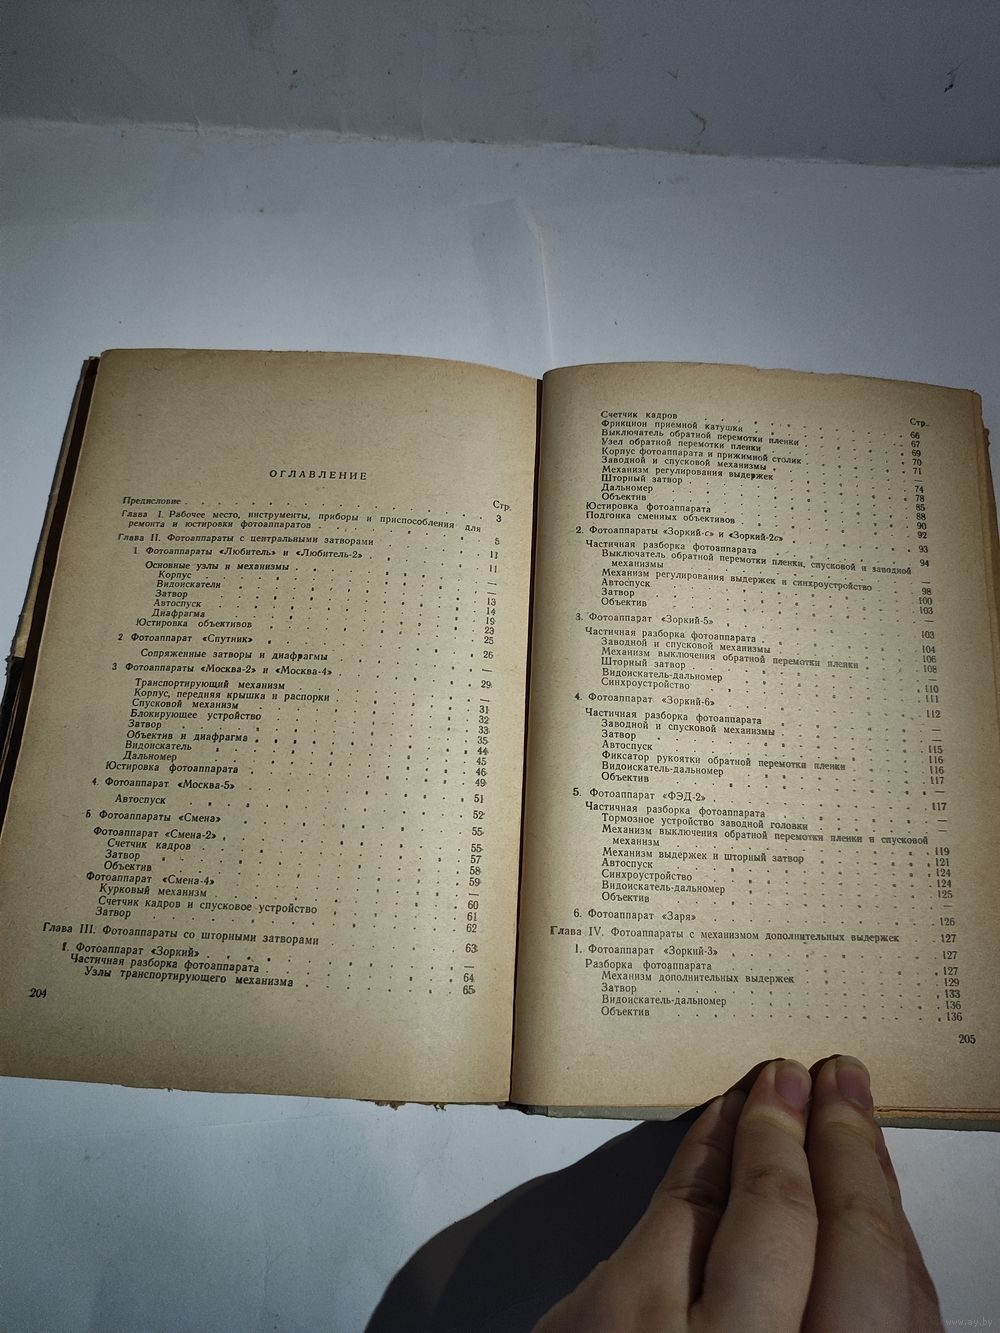 ОГЛАВЛЕНИЕ
Стр.
Предисловие 3
Глава I. Рабочее место, инструменты, приборы и приспособления для
ремонта и юстировки фотоаппаратов 5
Глава II. Фотоаппараты с центральными затворами 11
1. Фотоаппараты «Любитель» и «Любитель-2» 11
Основные узлы и механизмы —
Корпус —
Видоискатели 13
Затвор 14
Автоспуск 19
Диафрагма 23
Юстировка объективов 25
2 Фотоаппарат «Спутник» 26
Сопряженные затворы и диафрагмы —
3 Фотоаппараты «Москва-2» и «Москва-4» 29
Транспортирующий механизм
Корпус, передняя крышка и распорки 31
Спусковой механизм 32
Блокирующее устройство 33
Затвор 35
Объектив и диафрагма 44
Видоискатель 45
Дальномер 46
Юстировка фотоаппарата 49
4. Фотоаппарат «Москва-5» 51
Автоспуск 52
5. Фотоаппараты «Смена» 55
Фотоаппарат «Смена-2» 55
Счетчик кадров 57
Затвор 58
Объектив 59
Фотоаппарат «Смена-4» —
Курковый механизм 60
Счетчик кадров и спусковое устройство 61
Затвор 62
Глава III. Фотоаппараты со шторными затворами 63
1. Фотоаппарат «Зоркий» —
Частичная разборка фотоаппарата 64
Узлы транспортирующего механизма 65
204
Стр.
Счетчик кадров 66
Фрикцион приемной катушки 67
Выключатель обратной перемотки пленки 69
Узел обратной перемотки пленки 70
Корпус фотоаппарата и прижимной столик 71
Заводной и спусковой механизмы —
Механизм регулирования выдержек 74
Шторный затвор 78
Дальномер 85
Объектив 88
Юстировка фотоаппарата 90
Подгонка сменных объективов 92
2. Фотоаппараты «Зоркий-с» и «Зоркий-2с» 93
Частичная разборка фотоаппарата 94
Выключатель обратной перемотки пленки, спусковой и заводной
механизмы —
Механизм регулирования выдержек и синхроустройство 98
Автоспуск 100
Затвор 103
Объектив —
3. Фотоаппарат «Зоркий-5» 103
Частичная разборка фотоаппарата 104
Заводной и спусковой механизмы 106
Механизм выключения обратной перемотки пленки 108
Шторный затвор —
Видоискатель-дальномер 110
Синхроустройство 111
4. Фотоаппарат «Зоркий-6» 112
Частичная разборка фотоаппарата —
Заводной и спусковой механизмы —
Затвор 115
Автоспуск 116
Фиксатор рукоятки обратной перемотки пленки 116
Видоискатель-дальномер 117
Объектив —
5. Фотоаппарат «ФЭД-2» 117
Частичная разборка фотоаппарата —
Тормозное устройство заводной головки —
Механизм выключения обратной перемотки пленки и спусковой
механизм 119
Механизм выдержек и шторный затвор 121
Автоспуск 124
Синхроустройство 124
Видоискатель-дальномер 125
Объектив —
6. Фотоаппарат «Заря» 126
Глава IV. Фотоаппараты с механизмом дополнительных выдержек 127
1. Фотоаппарат «Зоркий-3» 127
Разборка фотоаппарата 127
Механизм дополнительных выдержек 129
Затвор 133
Видоискатель-дальномер 136
Объектив 136
205
www.ay.by